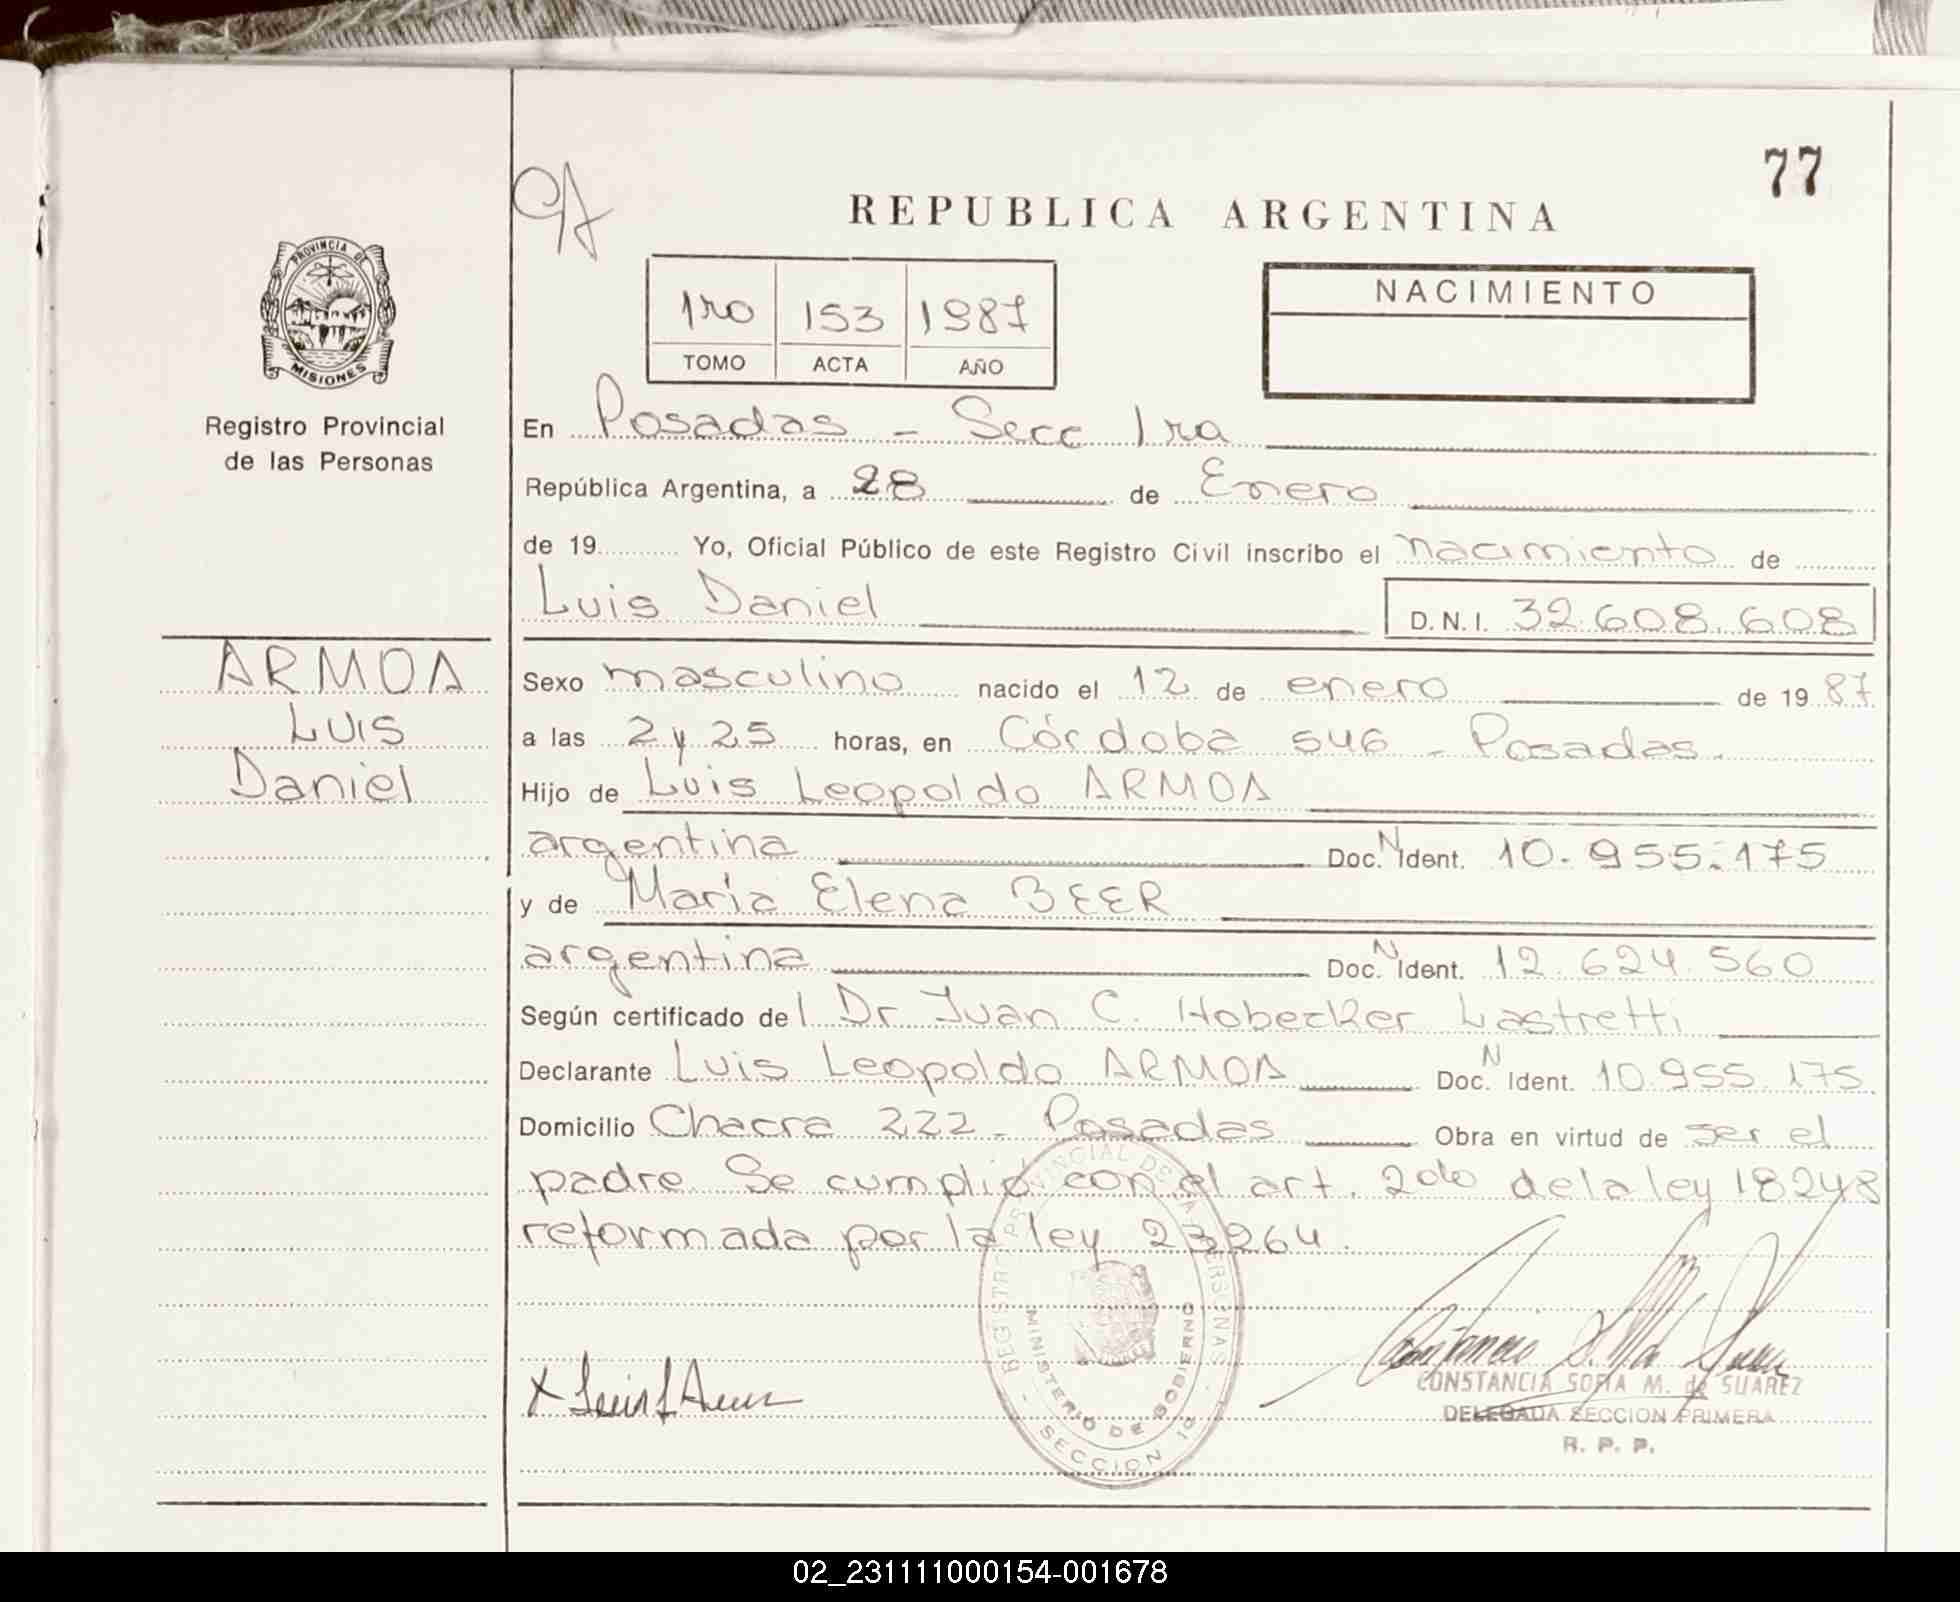 77
REPUBLICA ARGENTINA
PROVINCIA DE MISIONES
Registro Provincial
de las Personas
1ro 153 1987
TOMO ACTA AÑO
NACIMIENTO
En Posadas - Secc 1ra
República Argentina, a 28 de Enero
de 19 Yo, Oficial Público de este Registro Civil inscribo el nacimiento de
Luis Daniel D.N.I. 32.608.608
ARMOA
Luis
Daniel
Sexo masculino nacido el 12 de enero de 1987
a las 2 y 25 horas, en Córdoba 546 - Posadas.
Hijo de Luis Leopoldo ARMOA
argentina Doc. N Ident. 10.955.175
y de María Elena BEER
argentina Doc. N Ident. 12.624.560
Según certificado del Dr Juan C. Hobecker Lastretti
Declarante Luis Leopoldo ARMOA Doc. N Ident. 10.955.175
Domicilio Chacra 222 - Posadas Obra en virtud de ser el
padre. Se cumplió con el art. 2do de la ley 18248
reformada por la ley 23264.
REGISTRO PROVINCIAL DE LAS PERSONAS
MINISTERIO DE GOBIERNO
SECCION 1a
CONSTANCIA SOFIA M. de SUAREZ
DELEGADA SECCION PRIMERA
R. P. P.
02_231111000154-001678